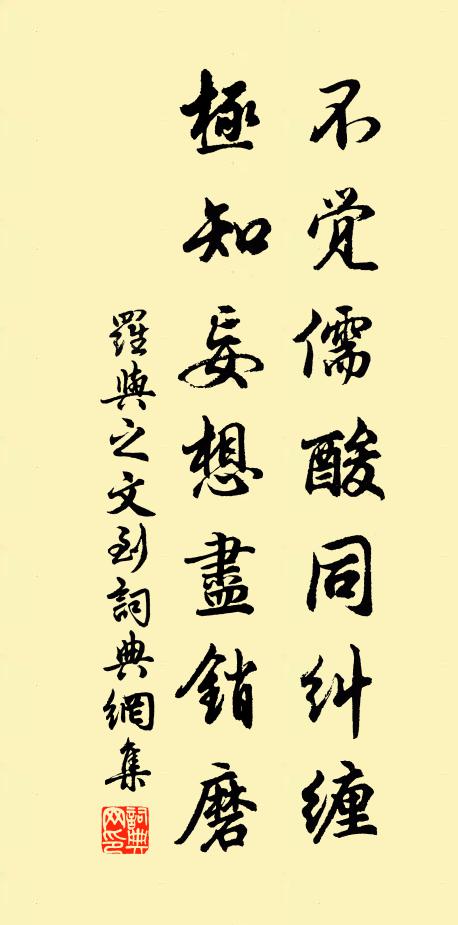 不觉儒酸同纠缠
極知妄想盡銷磨
羅與之文到詞典網集
詞典网印